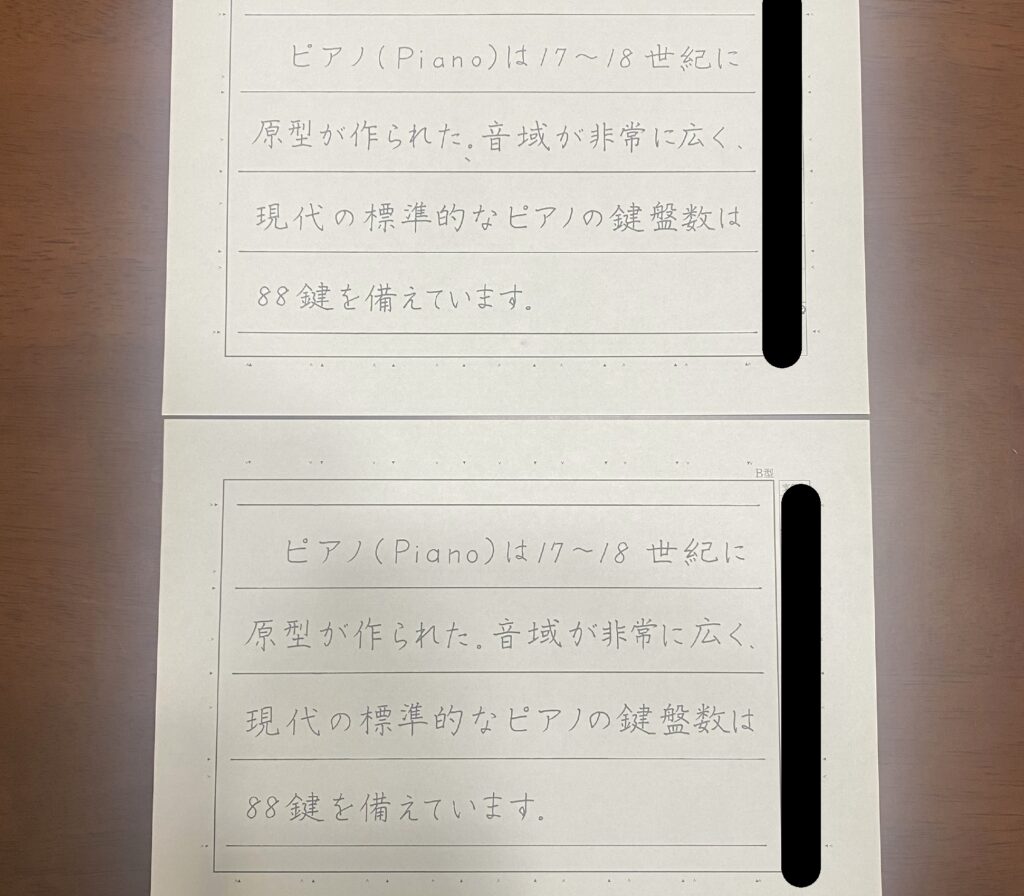 ピアノ(Piano)は17〜18世紀に
原型が作られた。音域が非常に広く、
現代の標準的なピアノの鍵盤数は
88鍵を備えています。
B型
ピアノ(Piano)は17〜18世紀に
原型が作られた。音域が非常に広く、
現代の標準的なピアノの鍵盤数は
88鍵を備えています。